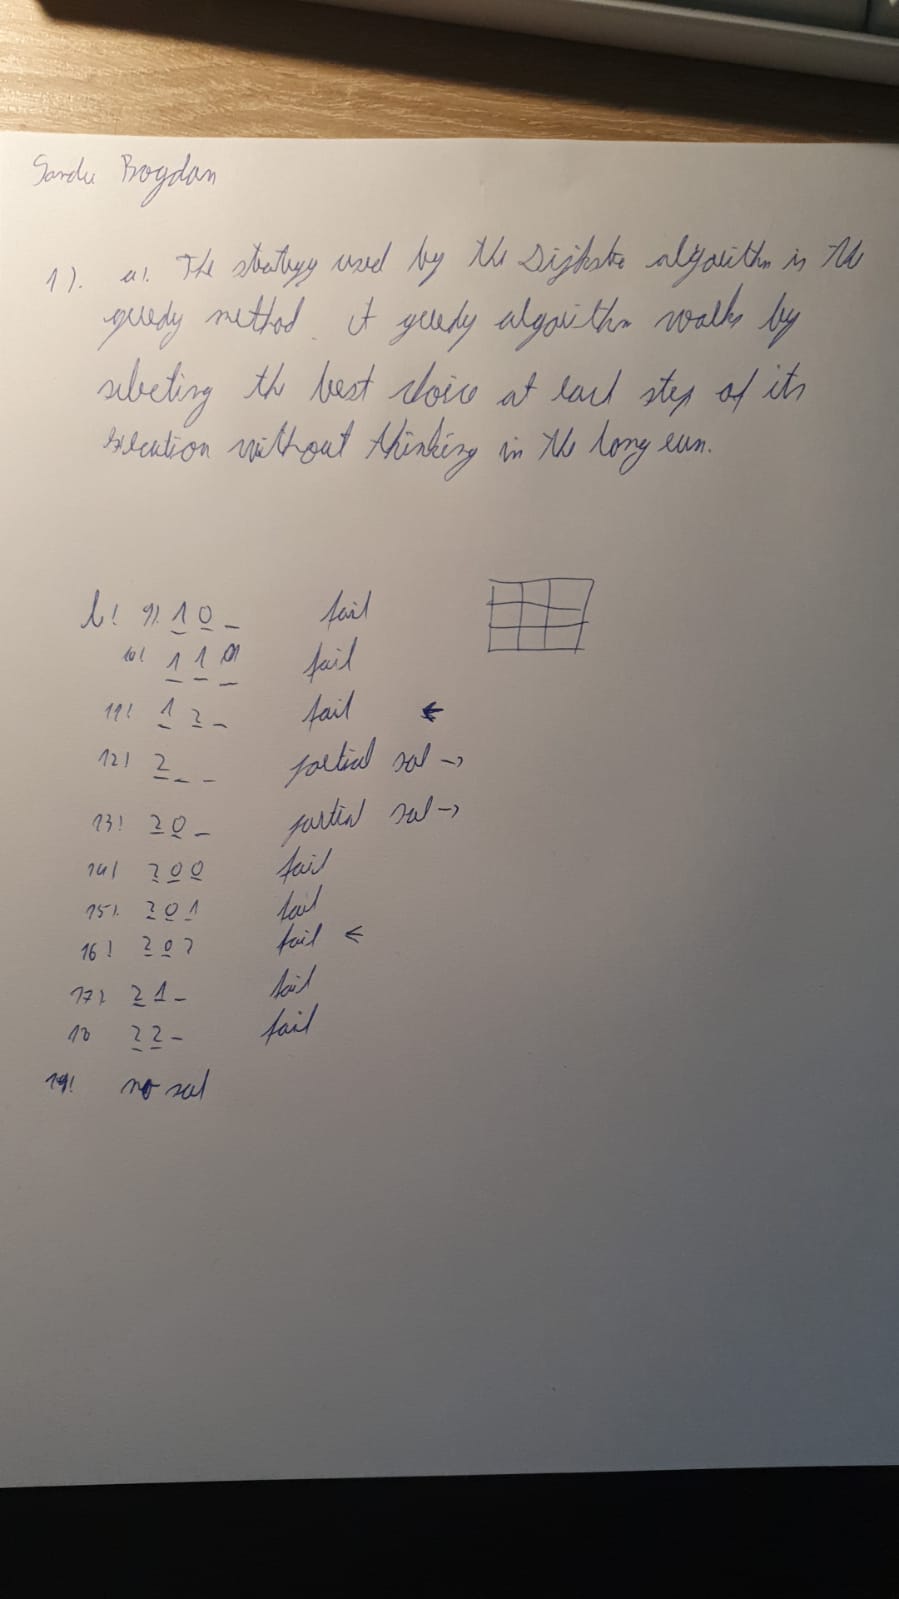 Sandu Bogdan
1). a). The strategy used by the Dijkstra algorithm is the
greedy method. A greedy algorithm works by
selecting the best choice at each step of its
execution without thinking in the long run.
b) 9). 1 0 _ fail
10) 1 1 _ fail
11) 1 2 _ fail ←
12) 2 _ _ partial sol →
13) 2 0 _ partial sol →
14) 2 0 0 fail
15). 2 0 1 fail
16) 2 0 2 fail ←
17). 2 1 _ fail
18 2 2 _ fail
19) no sol